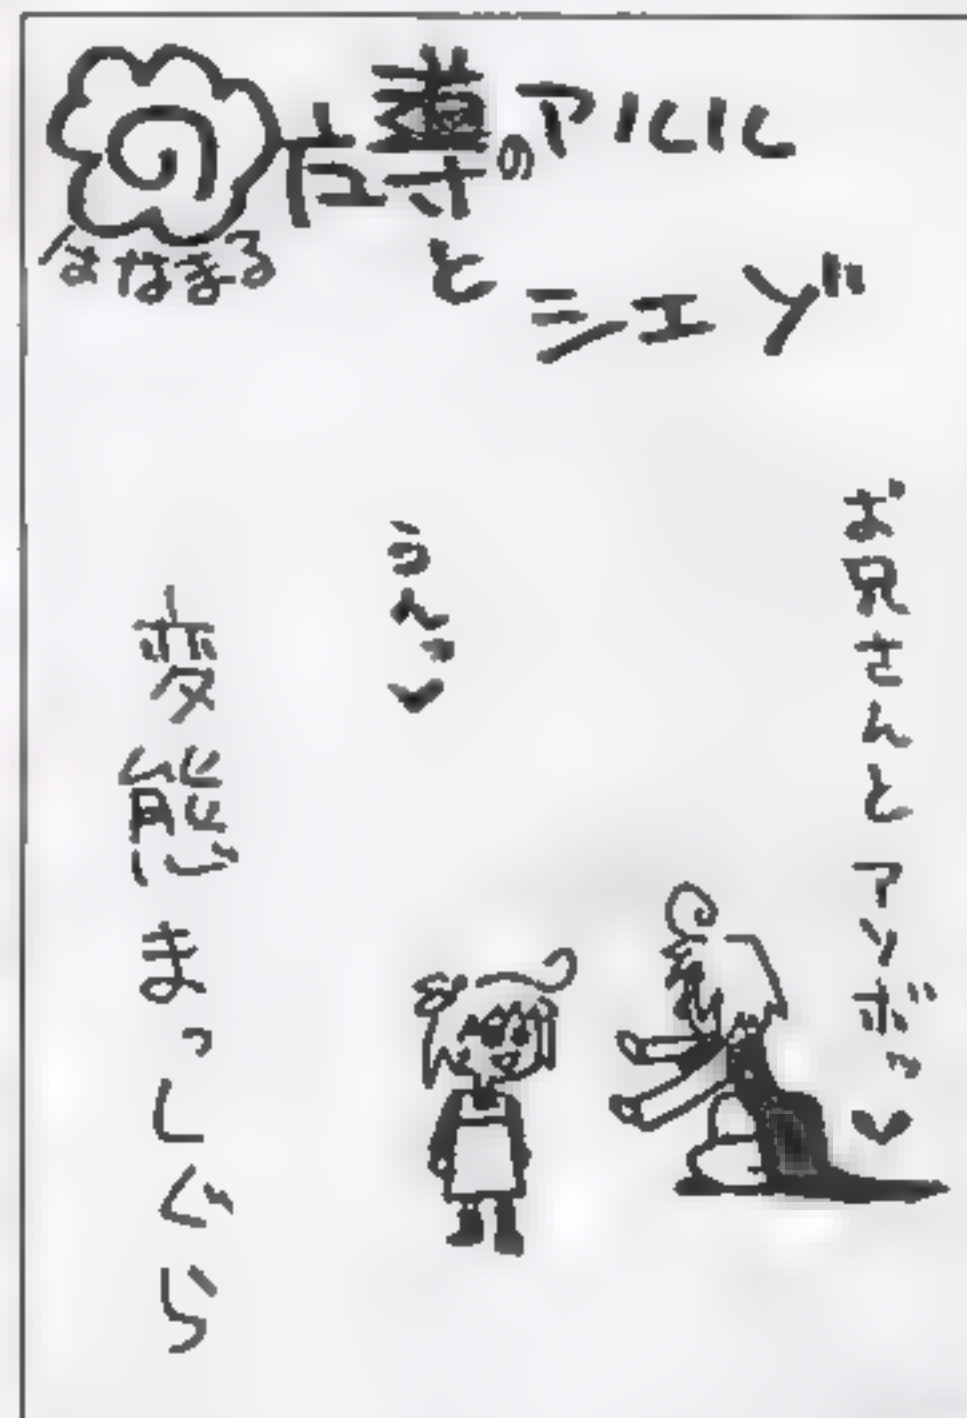 はなまる
導のアルル
と
シェゾ
お兄さんとアソボっ♥
うんっ♥
変態まっしぐら